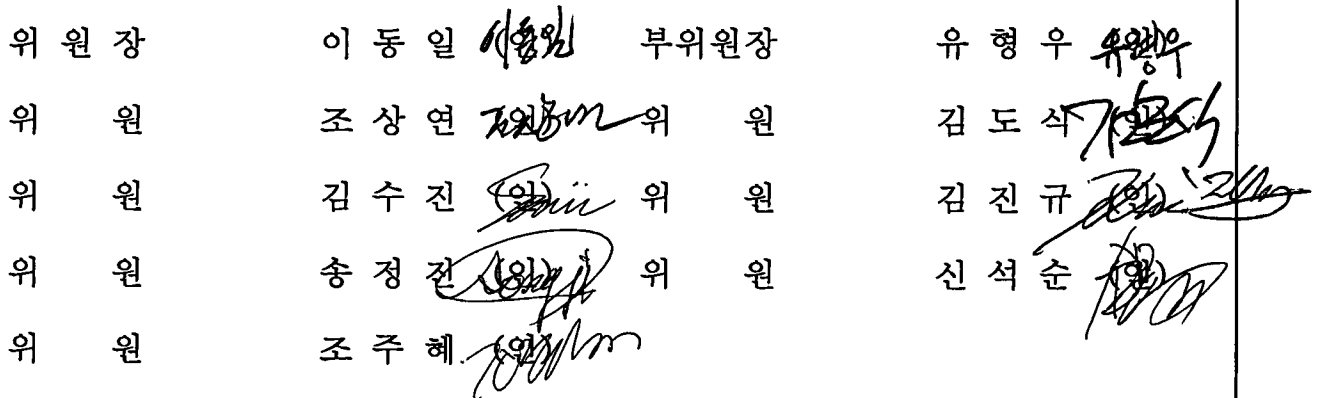 위 원 장 이 동 일 이동일 부위원장 유 형 우 유형우
위 원 조 상 연 (인) 위 원 김 도 식 (인)
위 원 김 수 진 (인) 위 원 김 진 규 (인)
위 원 송 정 진 (인) 위 원 신 석 순 (인)
위 원 조 주 혜 (인)